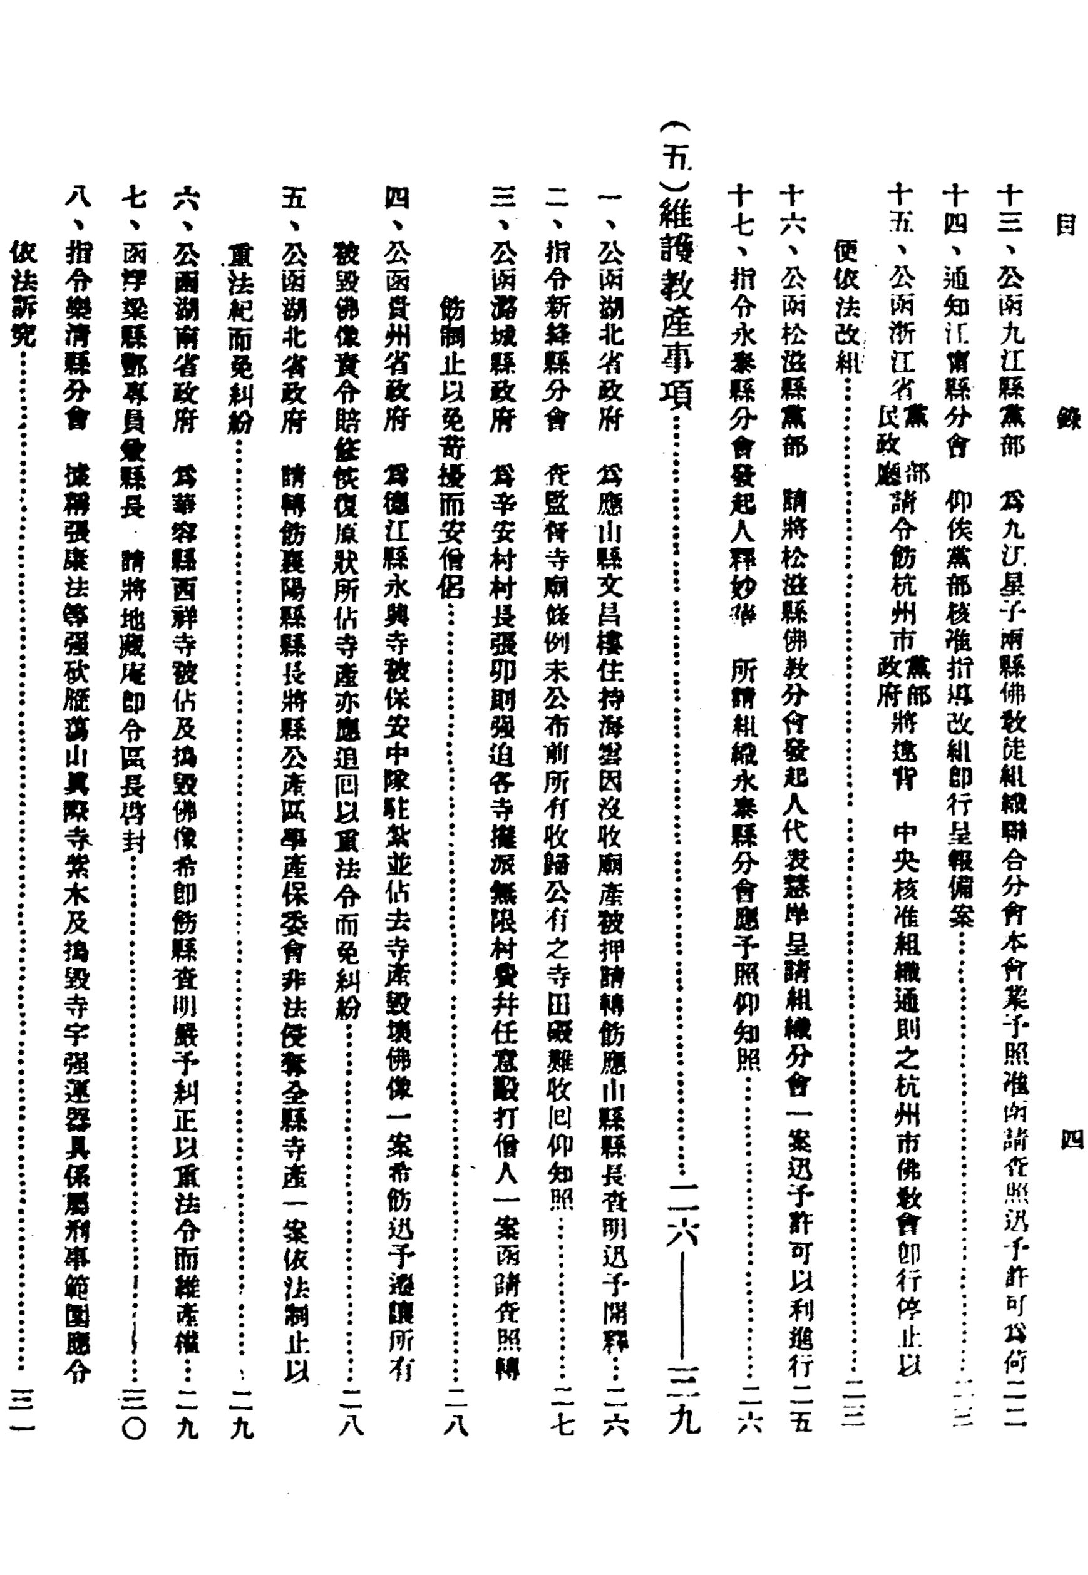 目錄 四
十三、公函九江縣黨部 為九江星子兩縣佛教徒組織聯合分會本會業予照准函請查照迅予許可為荷 二二
十四、通知江甯縣分會 仰俟黨部核准指導改組即行呈報備案…… 二三
十五、公函浙江省黨部民政廳請令飭杭州市黨部政府將違背 中央核准組織通則之杭州市佛教會即行停止以
便依法改組…… 二三
十六、公函松滋縣黨部 請將松滋縣佛教分會發起人代表慧岸呈請組織分會一案迅予許可以利進行 二五
十七、指令永泰縣分會發起人釋妙華 所請組織永泰縣分會應予照仰知照…… 二六
(五)維護教產事項…… 二六——三九
一、公函湖北省政府 為應山縣文昌樓住持海雲因沒收廟產被押請轉飭應山縣縣長查明迅予開釋… 二六
二、指令新絳縣分會 查監督寺廟條例未公布前所有收歸公有之寺田礙難收回仰知照…… 二七
三、公函潞城縣政府 為辛安村村長張卯則强迫各寺攤派無限村費并任意毆打僧人一案函請查照轉
飭制止以免苛擾而安僧侶…… 二八
四、公函貴州省政府 為德江縣永興寺被保安中隊駐紮並佔去寺產毀壞佛像一案希飭迅予遷讓所有
被毀佛像責令賠修恢復原狀所佔寺產亦應追回以重法令而免糾紛…… 二八
五、公函湖北省政府 請轉飭襄陽縣縣長將縣公產區學產保委會非法侵奪全縣寺產一案依法制止以
重法紀而免糾紛…… 二九
六、公函湖南省政府 為華容縣西祥寺被佔及搗毀佛像希即飭縣查明嚴予糾正以重法令而維產權… 二九
七、函浮梁縣鄧專員兼縣長 請將地藏庵即令區長啓封…… 三〇
八、指令樂清縣分會 據稱張康法等强砍雁蕩山眞際寺紫木及搗毀寺宇强運器具係屬刑事範圍應令
依法訴究…… 三一